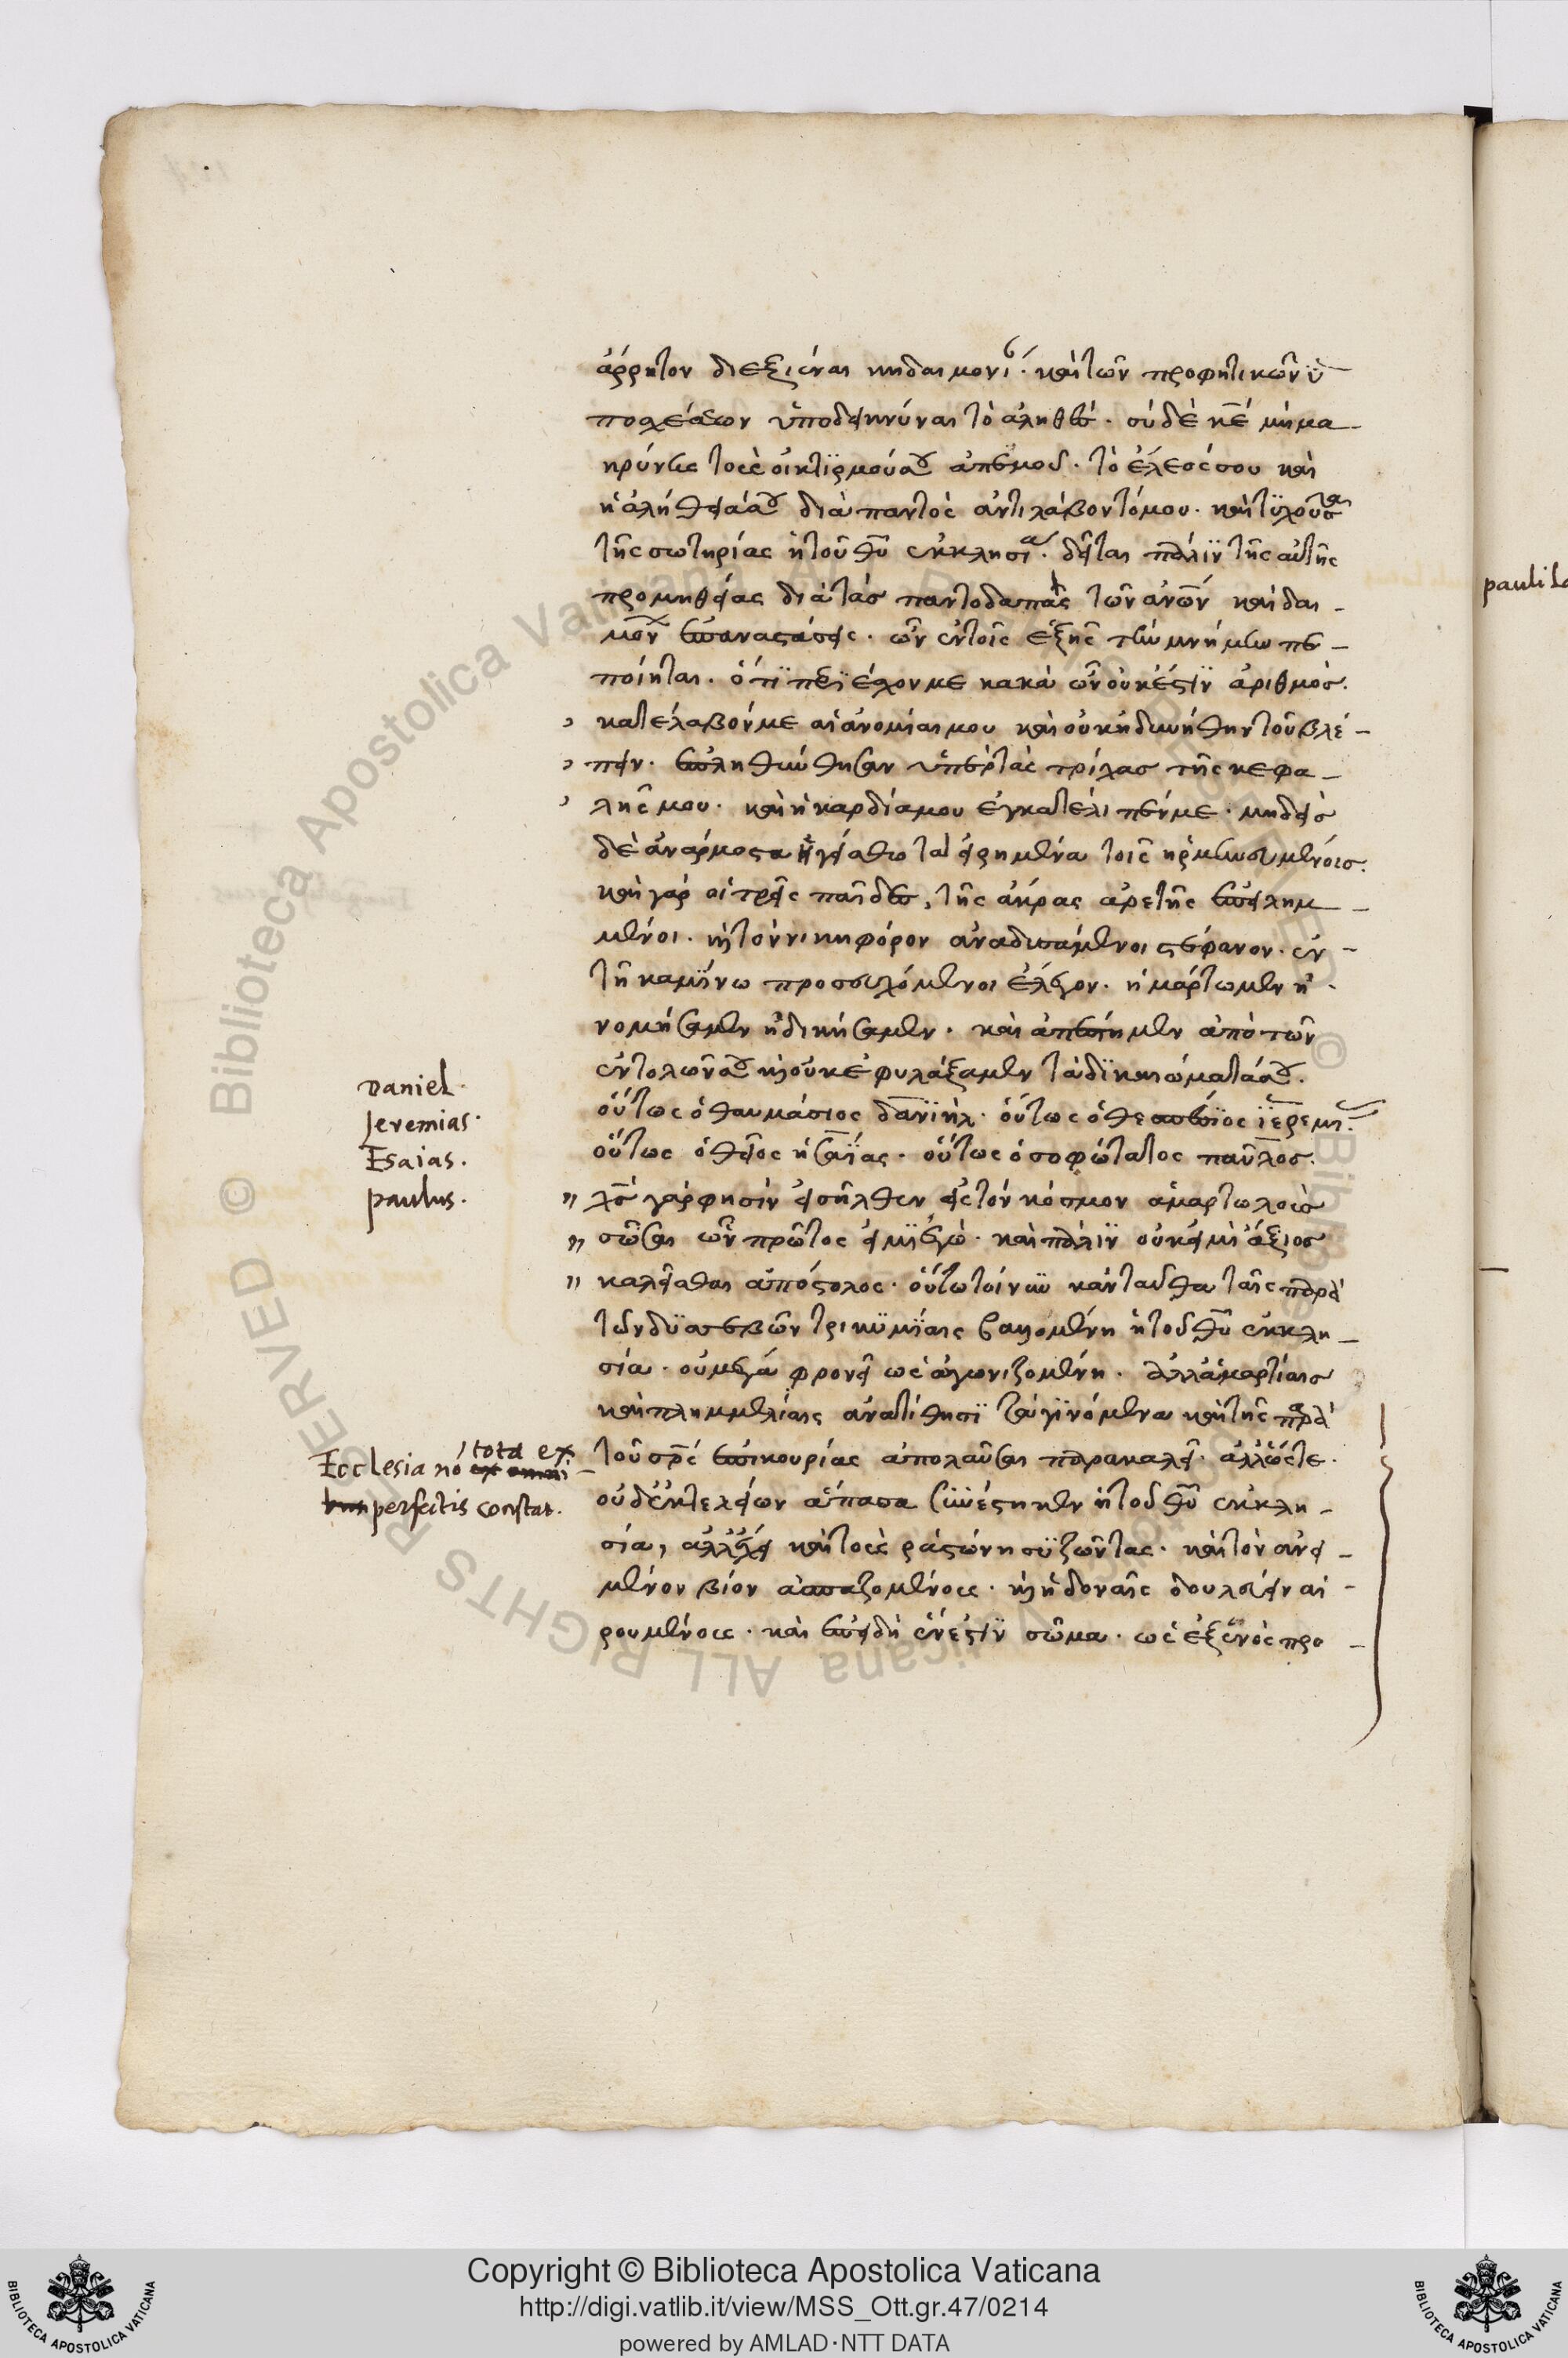 ἄρρητον διεξιέναι κηδεμονί. καὶ τῶν προφητικῶν ὑ
ποσχέσεων ὑποδεικνύναι τὸ ἀληθές. σὺ δὲ κε μὴ μα
κρύνῃς τοὺς οἰκτιρμούς σου ἀπ' ἐμοῦ. τὸ ἔλεός σου καὶ
ἡ ἀλήθειά σου διὰ παντὸς ἀντιλάβοντό μου. καὶ τυχοῦσα
τῆς σωτηρίας ἡ τοῦ θυ ἐκκλησία. δεῖται πάλιν τῆς αὐτῆς
προμηθείας διὰ τὰς παντοδαπὰς τῶν ανων καὶ δαι
μόν ἐπαναστάσεις. ὧν ἐν τοῖς ἑξῆς τὴν μνήμην πε
ποίηται. ὅτι περιέσχον με κακὰ ὧν οὐκ ἔστιν ἀριθμός.
κατέλαβόν με αἱ ἀνομίαι μου καὶ οὐκ ἠδυνήθην τοῦ βλέ
πειν. ἐπληθύνθησαν ὑπὲρ τὰς τρίχας τῆς κεφα
λῆς μου. καὶ ἡ καρδία μου ἐγκατέλιπέν με. μηδεὶς
δὲ ἀνάρμοστα ἡγείσθω τὰ εἰρημένα τοῖς ἡρμηνευμένοις.
καὶ γὰρ οἱ τρεῖς παῖδες, τῆς ἄκρας ἀρετῆς ἐπειλημ
μένοι. καὶ τὸν νικηφόρον ἀναδησάμενοι στέφανον. ἐν
τῇ καμίνω προσευχόμενοι ἔλεγον. ἡμάρτωμεν ἠ
νομήσαμεν ἠδικήσαμεν. καὶ ἀπέστημεν ἀπὸ τῶν
ἐντολῶν σου καὶ οὐκ ἐφυλάξαμεν τὰ δικαιώματά σου.
οὕτως ὁ θαυμάσιος δανιὴλ. οὕτως ὁ θεσπέσιος ἱερεμί.
οὕτως ὁ θεῖος ἡσαΐας. οὕτως ὁ σοφώτατος παῦλος.
χσ γάρ φησὶν εἰσῆλθεν εἰς τὸν κόσμον ἁμαρτωλοὺς
σῶσαι ὧν πρῶτος εἰμὶ ἐγώ. καὶ πάλιν οὐκ εἰμὶ ἄξιος
καλεῖσθαι ἀπόστολος. οὕτω τοίνυν κἀνταῦθα ταῖς παρὰ
τῶν δυσσεβῶν τρικυμίαις βαλλομένη ἡ τοῦ θυ ἐκκλη
σία. οὐ μεγά φρονεῖ ὡς ἀγωνιζομένη. ἀλλ' ἁμαρτίαις
καὶ πλημμελίαις ἀνατίθησι τὰ γινόμενα καὶ τῆς παρὰ
τοῦ σρς ἐπικουρίας ἀπολαῦσαι παρακαλεῖ. ἄλλως τε.
οὐδ' ἐκ τελείων ἅπασα συνέστηκεν ἡ τοῦ θυ ἐκκλη
σία, ἀλλ' ἔχει καὶ τοὺς ῥαστώνη συζῶντας. καὶ τὸν ἀνει
μένον βίον ἀσπαζομένους. καὶ ἡδοναῖς δουλεύειν αἱ
ρουμένους. καὶ ἐπειδὴ ἕν ἐστιν σῶμα. ὡς ἐξ ἑνὸς προ
Daniel.
Jeremias.
Esaias.
paulus.
Ecclesia nō tota ex
perfectis constat.
pauli
Copyright © Biblioteca Apostolica Vaticana
http://digi.vatlib.it/view/MSS_Ott.gr.47/0214
powered by AMLAD·NTT DATA
BIBLIOTECA APOSTOLICA VATICANA
BIBLIOTECA APOSTOLICA VATICANA
© Biblioteca Apostolica Vaticana ALL RIGHTS RESERVED